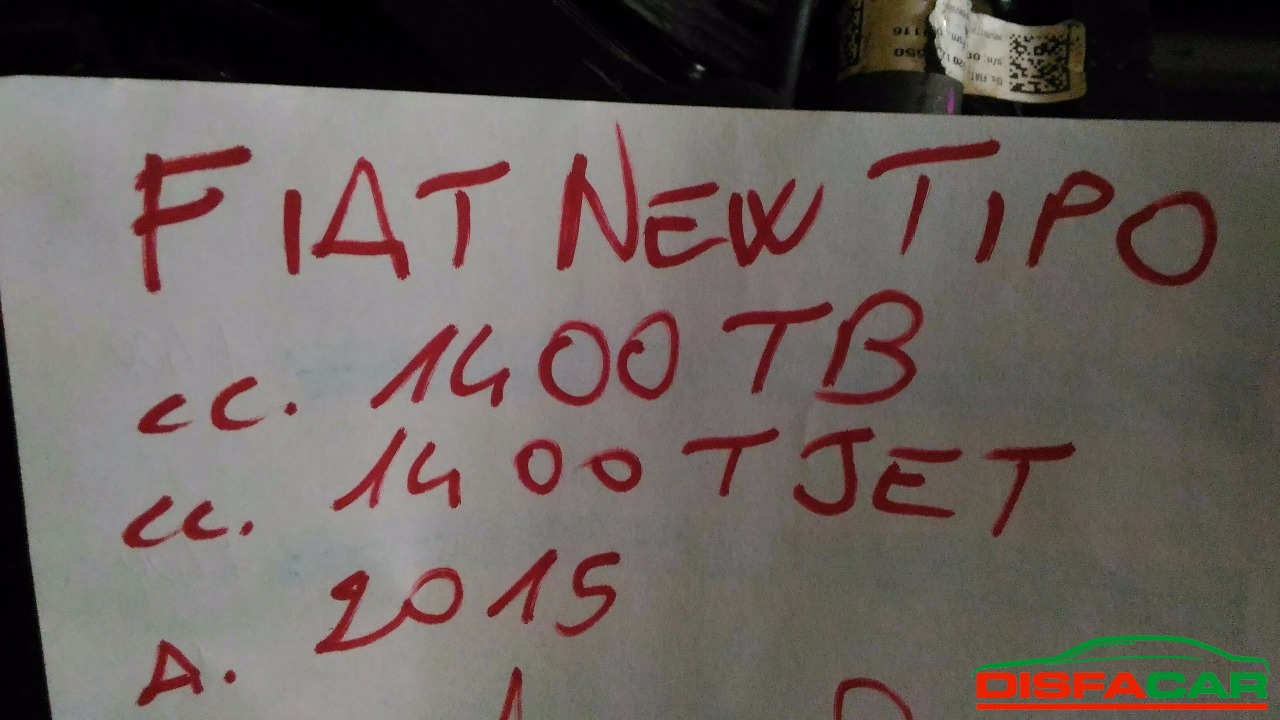 FIAT NEW TIPO
cc. 1400 TB
cc. 1400 T JET
A. 2015
DISFACAR